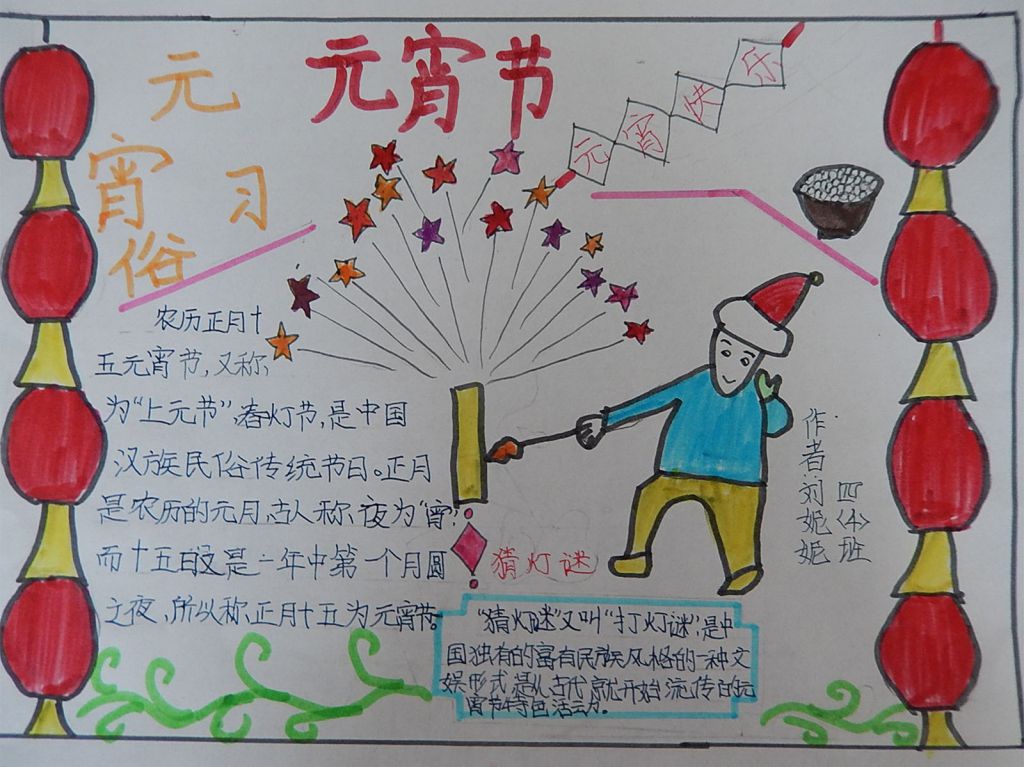 元宵节
元宵快乐
元
宵 习
俗
农历正月十
五元宵节,又称
为“上元节”,春灯节,是中国
汉族民俗传统节日。正月
是农历的元月,古人称夜为“宵”,
而十五日又是一年中第一个月圆
之夜,所以称正月十五为元宵节。
猜灯谜
“猜灯谜”又叫“打灯谜”,是中
国独有的富有民族风格的一种文
娱形式是从古代就开始流传的元
宵节特色活动。
作者:刘妮妮
四〈4〉班